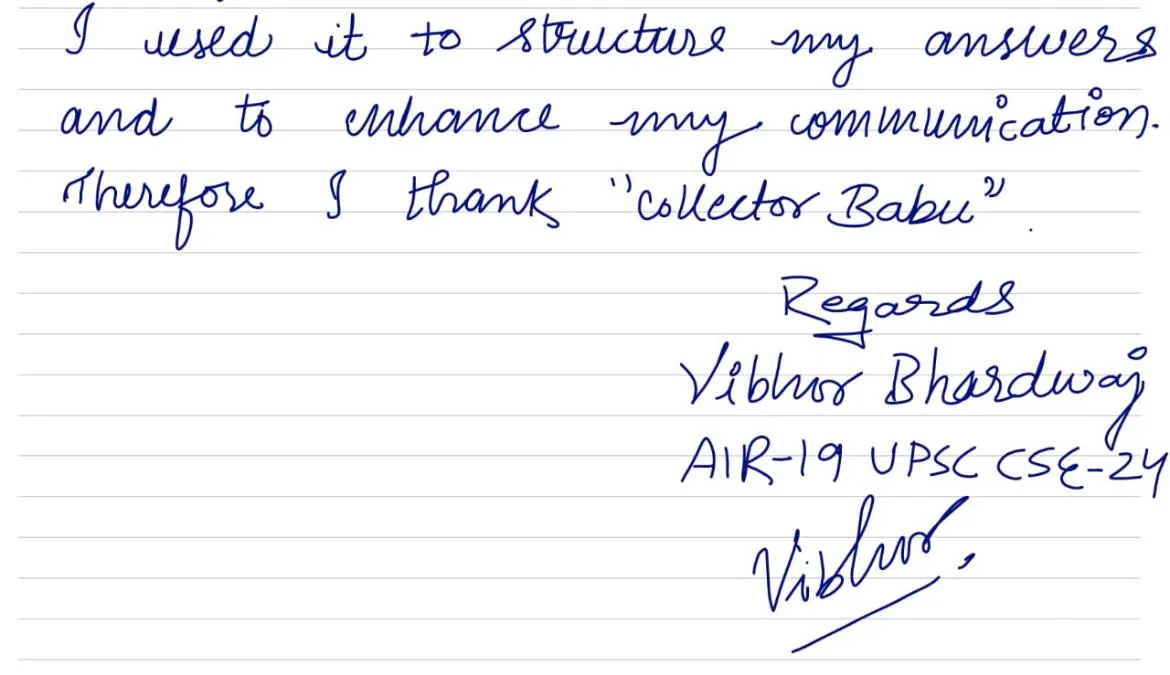 I used it to structure my answers
and to enhance my communication.
Therefore I thank "Collector Babu".
Regards
Vibhor Bhardwaj
AIR-19 UPSC CSE-24
Vibhor